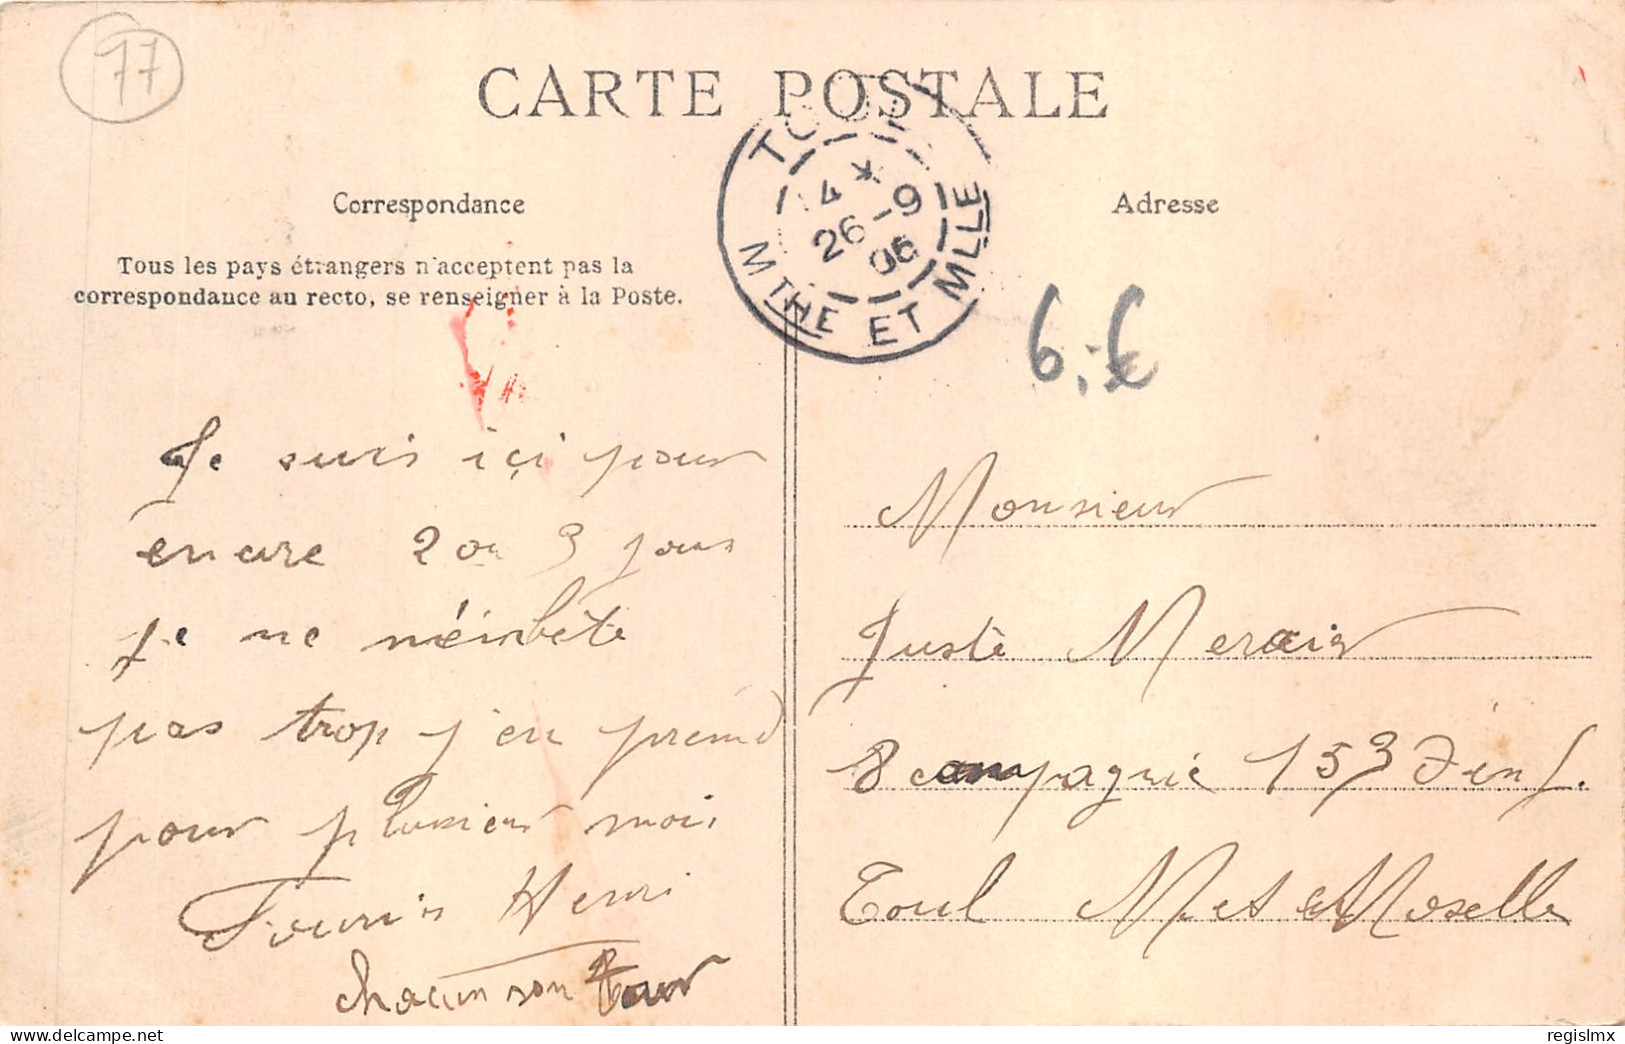 77
CARTE POSTALE
TOUL
4 *
26 - 9
06
MTHE ET MLLE
Correspondance
Tous les pays étrangers n'acceptent pas la
correspondance au recto, se renseigner à la Poste.
Je suis içi pour
encore 2 ou 3 jours
je ne m'éinbète
pas trop j'en prend
pour plusieur mois
Henri
chacun son tour
Adresse
6.-€
Monsieur
Juste
8 compagnie 153 d'inf.
Toul Mt et Moselle
regislmx